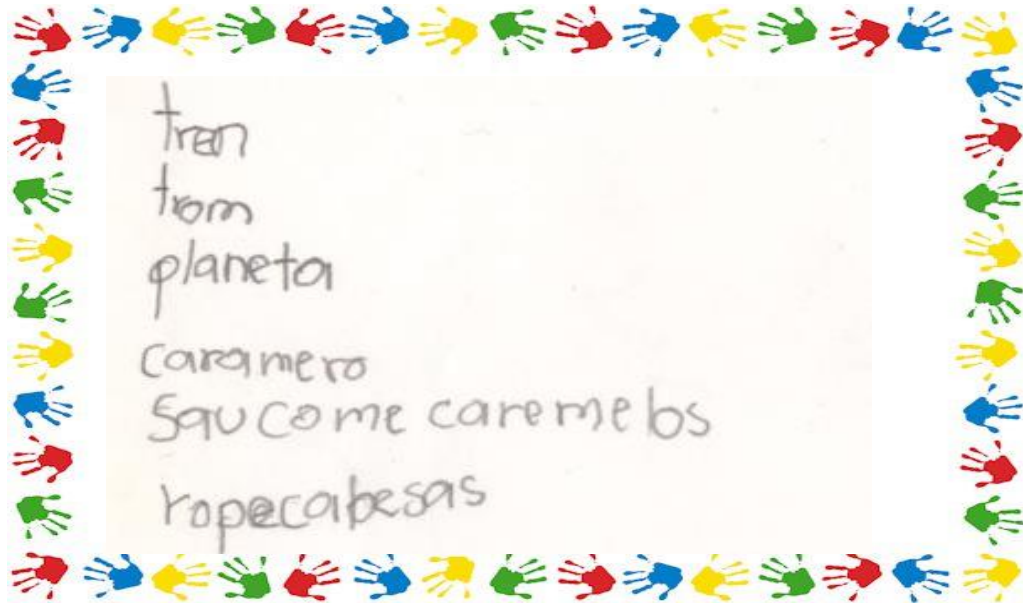 tren
trom
planeta
caramero
Sau come caremelos
ropecabesas